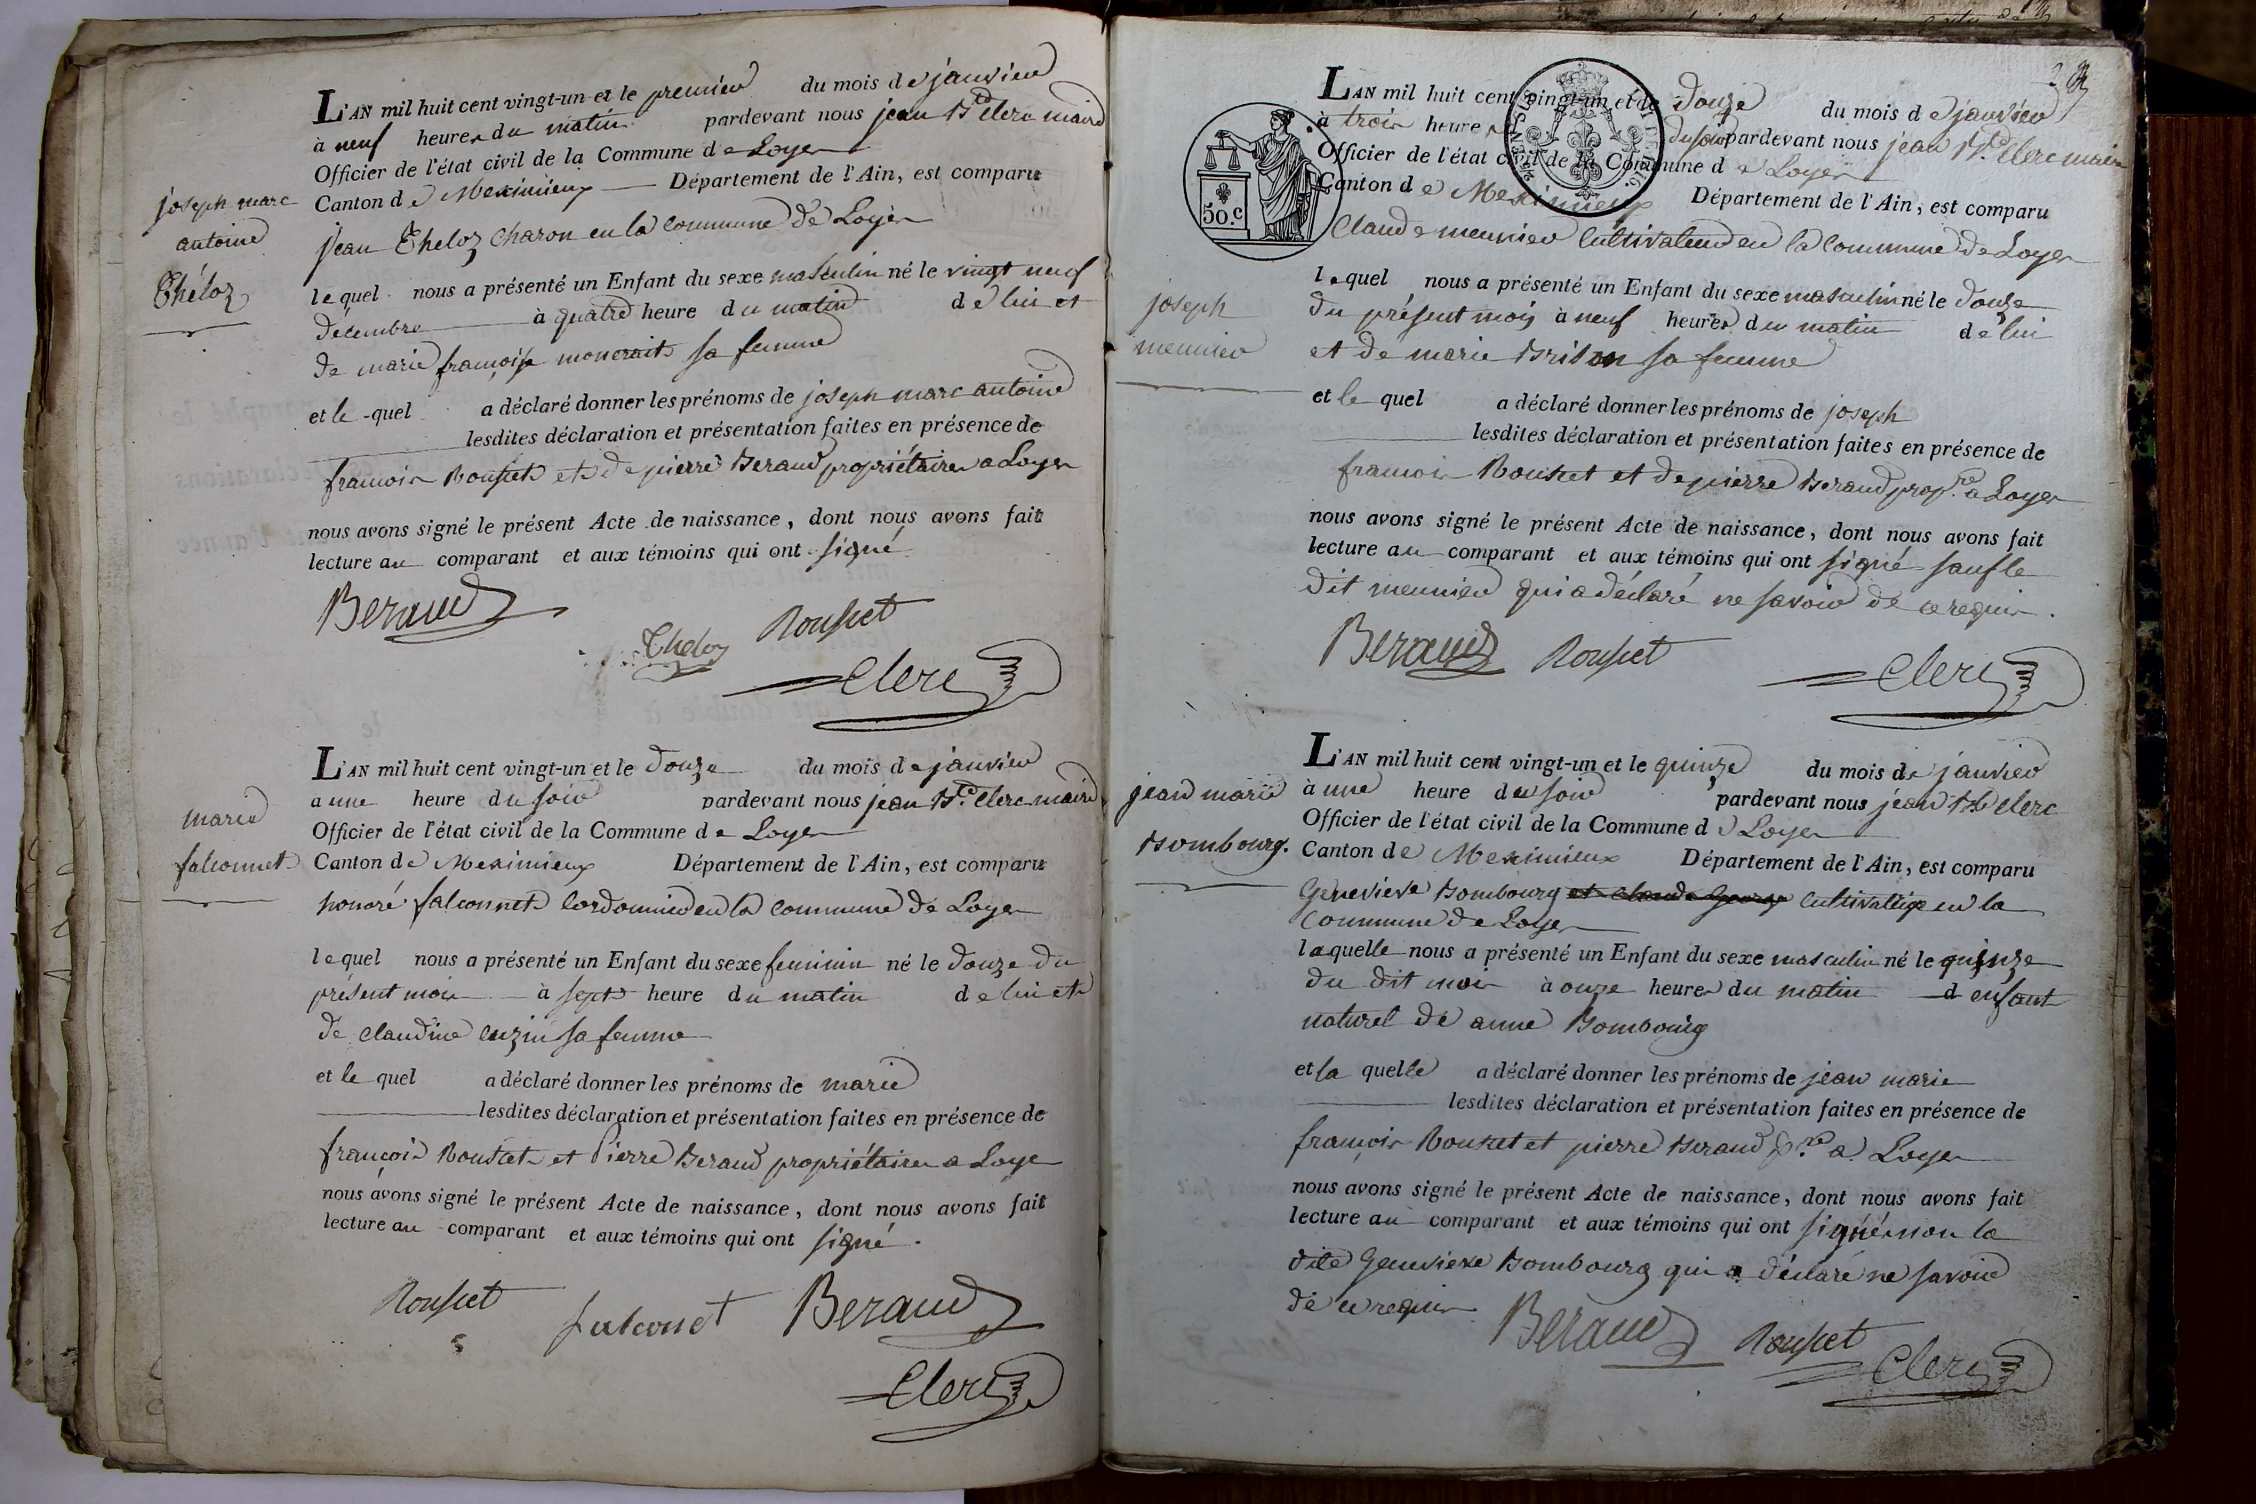 joseph marc
antoine
Théloz
L'AN mil huit cent vingt-un et le premier du mois de janvier
à neuf heures du matin pardevant nous jean Bte clerc maire
Officier de l'état civil de la Commune de Loyes
Canton de Meximieux Département de l'Ain, est comparu
jean Theloz charon en la commune de Loyes
lequel nous a présenté un Enfant du sexe masculin né le vingt neuf
décembre à quatre heure du matin de lui et
de marie françoise monerait sa femme
et le quel a déclaré donner les prénoms de joseph marc antoine
lesdites déclaration et présentation faites en présence de
francois Rousset et de pierre Beraud propriétaires a Loyes
nous avons signé le présent Acte de naissance, dont nous avons fait
lecture au comparant et aux témoins qui ont signé
Beraud
Theloz Rousset
Clerc
marie
falconnet
L'AN mil huit cent vingt-un et le douze du mois de janvier
a une heure du soir pardevant nous jean Bte clerc maire
Officier de l'état civil de la Commune de Loyes
Canton de Meximieux Département de l'Ain, est comparu
honoré falconnet cordonnier en la commune de Loyes
lequel nous a présenté un Enfant du sexe feminin né le douze du
présent mois à sept heure du matin de lui et
de claudine cuzin sa femme
et le quel a déclaré donner les prénoms de marie
lesdites déclaration et présentation faites en présence de
françois Rousset et Pierre Beraud propriétaires a Loye
nous avons signé le présent Acte de naissance, dont nous avons fait
lecture au comparant et aux témoins qui ont signé.
Rousset falconet Beraud
Clerc
2
50.c
joseph
meunier
L'AN mil huit cent vingt-un et le douze du mois de janvier
à trois heures du soir pardevant nous jean Bte clerc maire
Officier de l'état civil de la Commune de Loyes
Canton de Meximieux Département de l'Ain, est comparu
Claude meunier cultivateur en la commune de Loyes
lequel nous a présenté un Enfant du sexe masculin né le douze
du présent mois à neuf heures du matin de lui
et de marie Brison sa femme
et le quel a déclaré donner les prénoms de joseph
lesdites déclaration et présentation faites en présence de
francois Rousset et de pierre Beraud propre a Loyes
nous avons signé le présent Acte de naissance, dont nous avons fait
lecture au comparant et aux témoins qui ont signé sauf le
dit meunier qui a déclaré ne savoir de ce requis.
Beraud Rousset
Clerc
jean marie
Bombourg.
L'AN mil huit cent vingt-un et le quinze du mois de janvier
à une heure du soir pardevant nous jean Bte clerc
Officier de l'état civil de la Commune de Loyes
Canton de Meximieux Département de l'Ain, est comparu
Genevieve Bombourg et claude George cultivatrice en la
commune de Loyes
laquelle nous a présenté un Enfant du sexe masculin né le quinze
du dit mois à onze heures du matin d enfant
naturel de anne Bombourg
et la quelle a déclaré donner les prénoms de jean marie
lesdites déclaration et présentation faites en présence de
françois Rousset et pierre Beraud pre a Loyes
nous avons signé le présent Acte de naissance, dont nous avons fait
lecture au comparant et aux témoins qui ont signé non la
dite Genevieve Bombourg qui a déclaré ne savoir
de ce requis
Beraud Rousset
Clerc